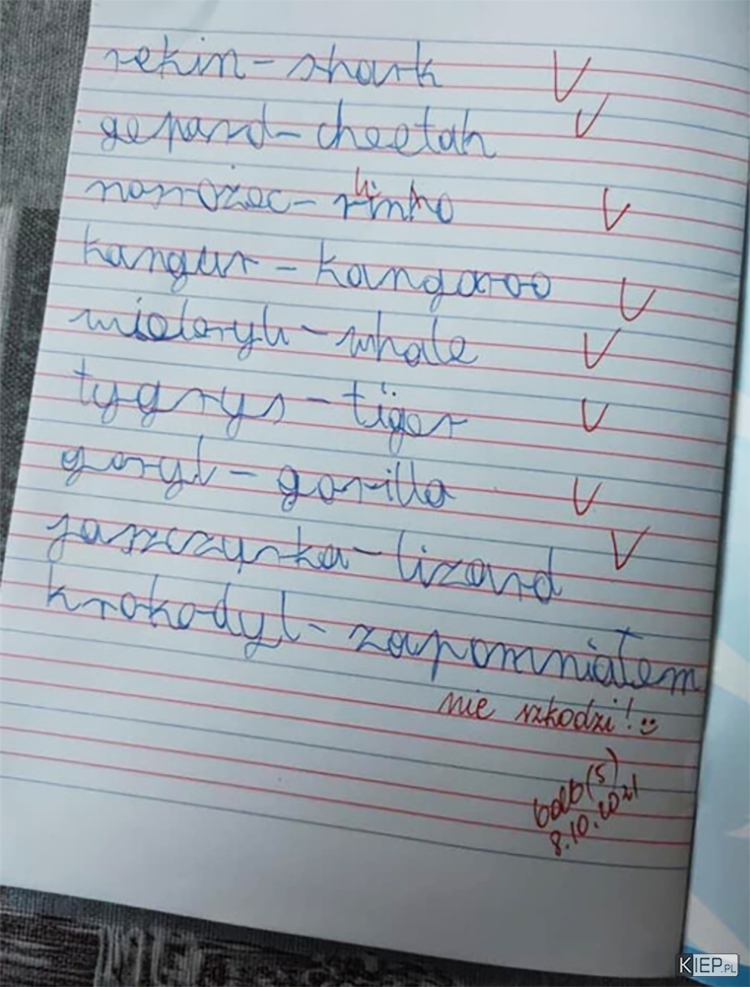 rekin - shark
gepard - cheetah
nosrożec - rhinho
kangur - kangaroo
wieloryb - whale
tygrys - tiger
goryl - gorilla
jaszczurka - lizard
krokodyl - zapomniałem
nie szkodzi! :)
bdb (5)
8.10.2021
KIEP.PL